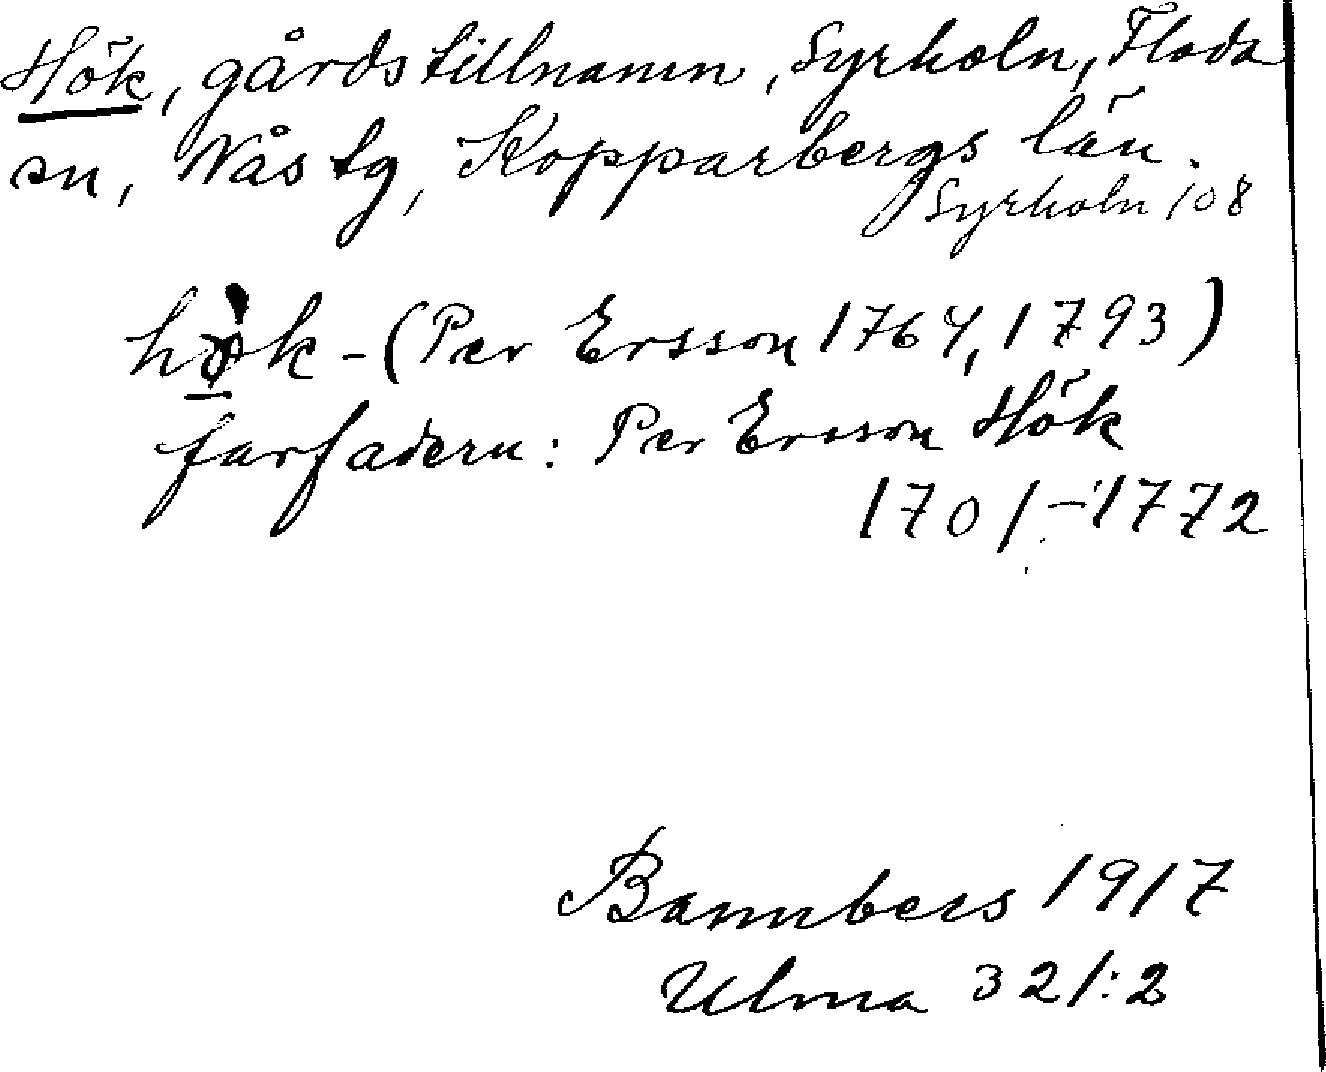 Hök, gårdstillnamn, Syrholn, Floda
sn, Nås tg, Kopparbergs län.
Syrholn 108
hö̀k - (Per Ersson 1764, 1793)
farfadern: Per Ersson Hök
1701-1772
Bannbers 1917
Ulma 321:2